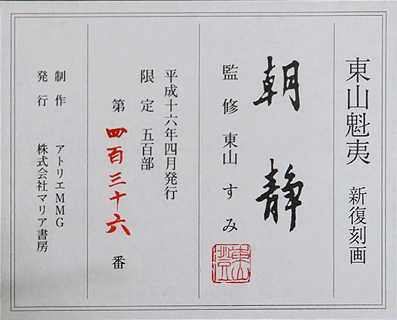 東山魁夷 新復刻画
朝静
監修 東山すみ
平成十六年四月発行
限定 五百部
第 四百三十六 番
制作 アトリエMMG
発行 株式会社マリア書房